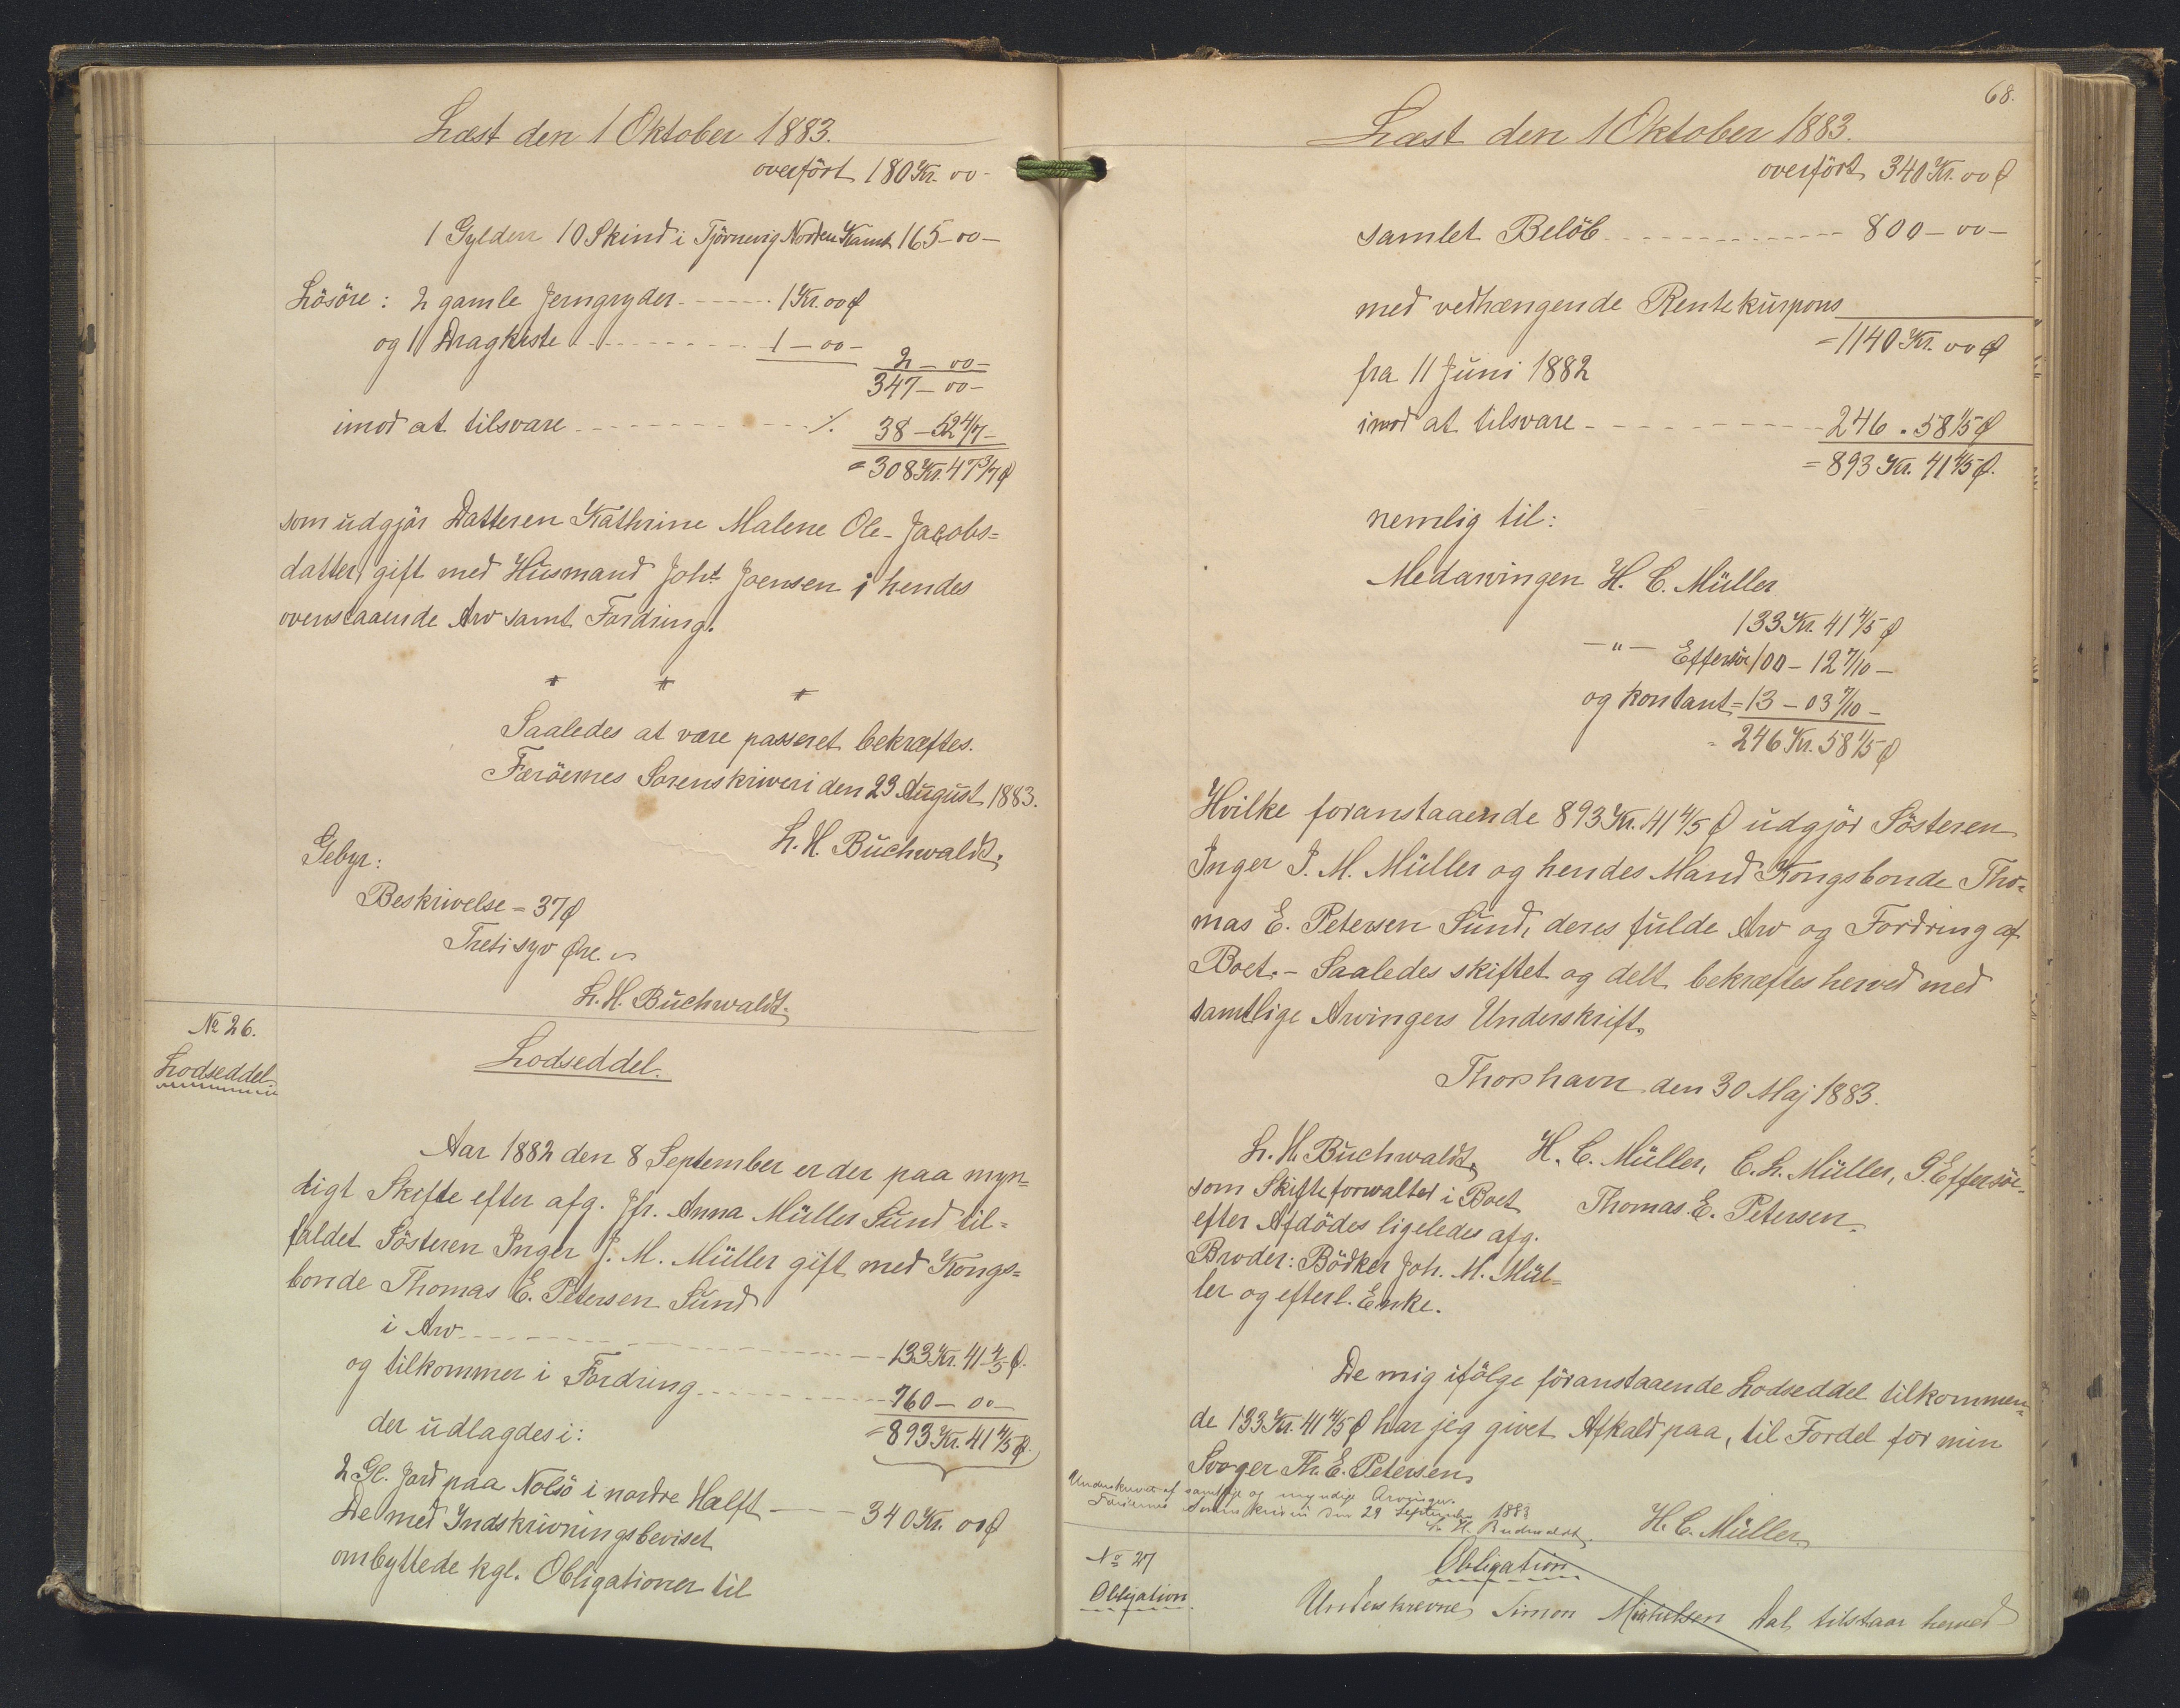 Læst den 1 Oktober 1883.
overfört 180 Kr. 00 -
1 Gylden 10 Skind i Tjörnevig Norden Kamb 165 - 00 -
Lösöre: 2 gamle Jerngryder - - - - 1 Kr. 00 Ø
og 1 Dragkiste - - - - - - - 1 - 00 -
2 - 00 -
347 - 00 -
imod at tilsvare - - - - - - - - ./. 38 - 52 4/7 -
= 308 Kr. 47 3/7 Ø
som udgjör Datteren Kathrine Malene Ole-Jacobs=
datter, gift med Husmand Johs Joensen i hendes
ovenstaaende Arv samt Fordring.
Saaledes at være passeret bekræftes.
Færöernes Sorenskriveri den 23 August 1883.
L. H. Buchwaldt.
Gebyr:
Beskrivelse = 37 Ø
Tretisyv Øre.
L. H. Buchwaldt.
No 26.
Lodseddel.
Lodseddel.
Aar 1882 den 8 September er der paa myn=
digt Skifte efter afg. Jfr. Anna Müller Sund til=
faldet Sösteren Inger J. M. Müller gift med Kongs=
bonde Thomas E. Petersen Sund
i Arv - - - - - - - - 133 Kr. 41 4/5 Ø.
og tilkommer i Fordring - - - - - 760 - 00 -
= 893 Kr. 41 4/5 Ø.
der udlagdes i:
2 Gl. Jord paa Nolsö i nordre Halft - - - 340 Kr. 00 Ø
De med Indskrivningsbeviset
ombyttede kgl. Obligationer til
68.
Læst den 1 Oktober 1883.
overfört 340 Kr. 00 Ø
samlet Belöb - - - - - - - - 800 - 00 -
med vedhængende Rentekurpons
= 1140 Kr. 00 Ø
fra 11 Juni 1882
imod at tilsvare - - - - - - - - 246 . 58 1/5 Ø
= 893 Kr. 41 4/5 Ø.
nemlig til:
Medarvingen H. C. Müller
133 Kr. 41 4/5 Ø
- " - Effersöe 100 - 12 7/10 -
og kontant = 13 - 03 7/10 -
= 246 Kr. 58 1/5 Ø
Hvilke foranstaaende 893 Kr. 41 4/5 Ø udgjör Sösteren
Inger J. M. Müller og hendes Mand Kongsbonde Tho=
mas E. Petersen Sund, deres fulde Arv og Fordring af
Boet. - Saaledes skiftet og delt bekræftes herved med
samtlige Arvingers Underskrift.
Thorshavn den 30 Maj 1883.
L. H. Buchwaldt, H. C. Müller, C. L. Müller, G. Effersöe.
som Skifteforvalter i Boet Thomas E. Petersen.
efter Afdödes ligeledes afg.
Broder: Bödker Joh. M. Mül=
ler og efterl. Enke.
De mig ifölge foranstaaende Lodseddel tilkommen=
de 133 Kr. 41 4/5 Ø har jeg givet Afkald paa, til Fordel for min
Svoger Th. E. Petersen.
Underskrevet af samtlige og myndige Arvinger.
Færöernes Sorenskriveri den 29 September 1883
L. H. Buchwaldt.
H. C. Müller.
No 27
Obligation.
Obligation
Underskrevne Simon Michelsen Dal, tilstaar herved